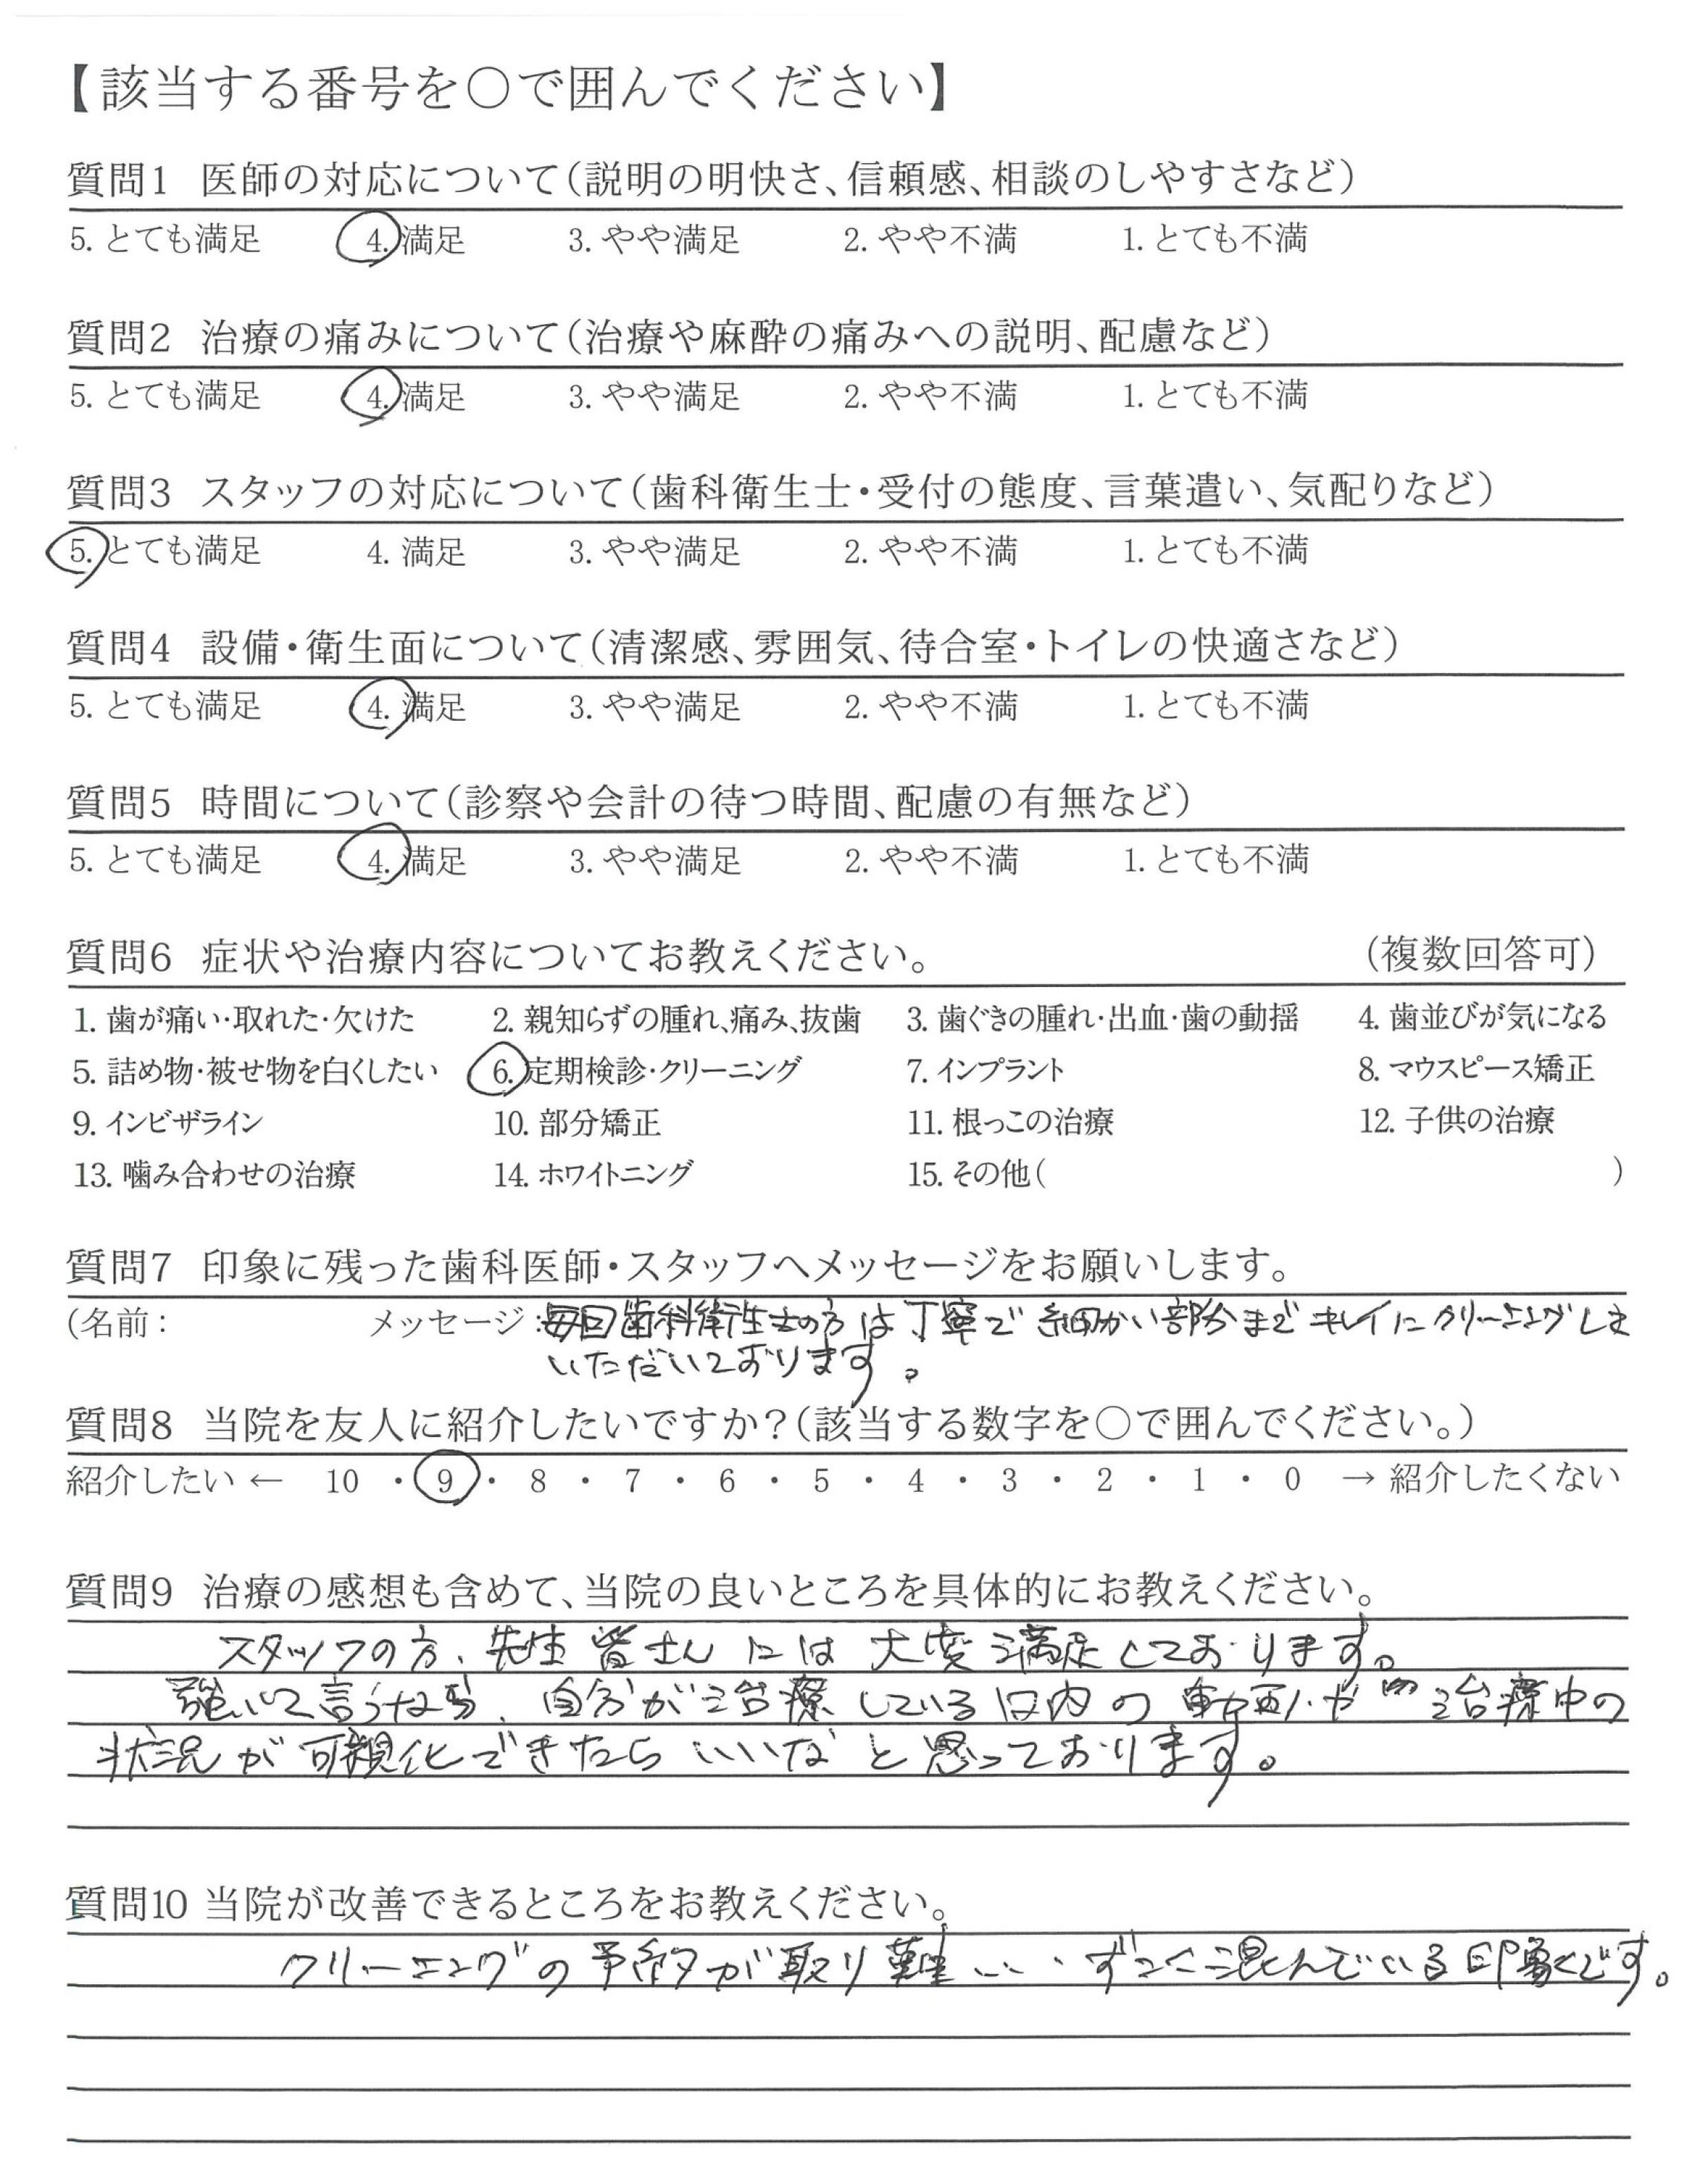 【該当する番号を○で囲んでください】
質問1 医師の対応について(説明の明快さ、信頼感、相談のしやすさなど)
5. とても満足 4. 満足 3. やや満足 2. やや不満 1. とても不満
質問2 治療の痛みについて(治療や麻酔の痛みへの説明、配慮など)
5. とても満足 4. 満足 3. やや満足 2. やや不満 1. とても不満
質問3 スタッフの対応について(歯科衛生士・受付の態度、言葉遣い、気配りなど)
5. とても満足 4. 満足 3. やや満足 2. やや不満 1. とても不満
質問4 設備・衛生面について(清潔感、雰囲気、待合室・トイレの快適さなど)
5. とても満足 4. 満足 3. やや満足 2. やや不満 1. とても不満
質問5 時間について(診察や会計の待つ時間、配慮の有無など)
5. とても満足 4. 満足 3. やや満足 2. やや不満 1. とても不満
質問6 症状や治療内容についてお教えください。 (複数回答可)
1. 歯が痛い・取れた・欠けた 2. 親知らずの腫れ、痛み、抜歯 3. 歯ぐきの腫れ・出血・歯の動揺 4. 歯並びが気になる
5. 詰め物・被せ物を白くしたい 6. 定期検診・クリーニング 7. インプラント 8. マウスピース矯正
9. インビザライン 10. 部分矯正 11. 根っこの治療 12. 子供の治療
13. 噛み合わせの治療 14. ホワイトニング 15. その他( )
質問7 印象に残った歯科医師・スタッフへメッセージをお願いします。
(名前: メッセージ:毎回歯科衛生士の方は丁寧で細かい部分までキレイにクリーニングしま
いただいております。
質問8 当院を友人に紹介したいですか?(該当する数字を○で囲んでください。)
紹介したい ← 10 ・ 9 ・ 8 ・ 7 ・ 6 ・ 5 ・ 4 ・ 3 ・ 2 ・ 1 ・ 0 → 紹介したくない
質問9 治療の感想も含めて、当院の良いところを具体的にお教えください。
スタッフの方、先生皆さんには大変満足しております。
強いて言うなら、自分が治療している口内の動画や治療中の
状況が可視化できたらいいなと思っております。
質問10 当院が改善できるところをお教えください。
クリーニングの予約が取り難い、ずっと混んでいる印象です。